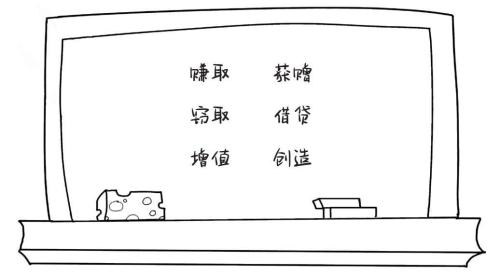 赚取 获赠
窃取 借贷
增值 创造